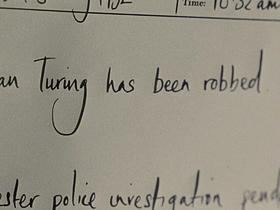 Time: 10:32 am
an Turing has been robbed.
ester police investigation pend